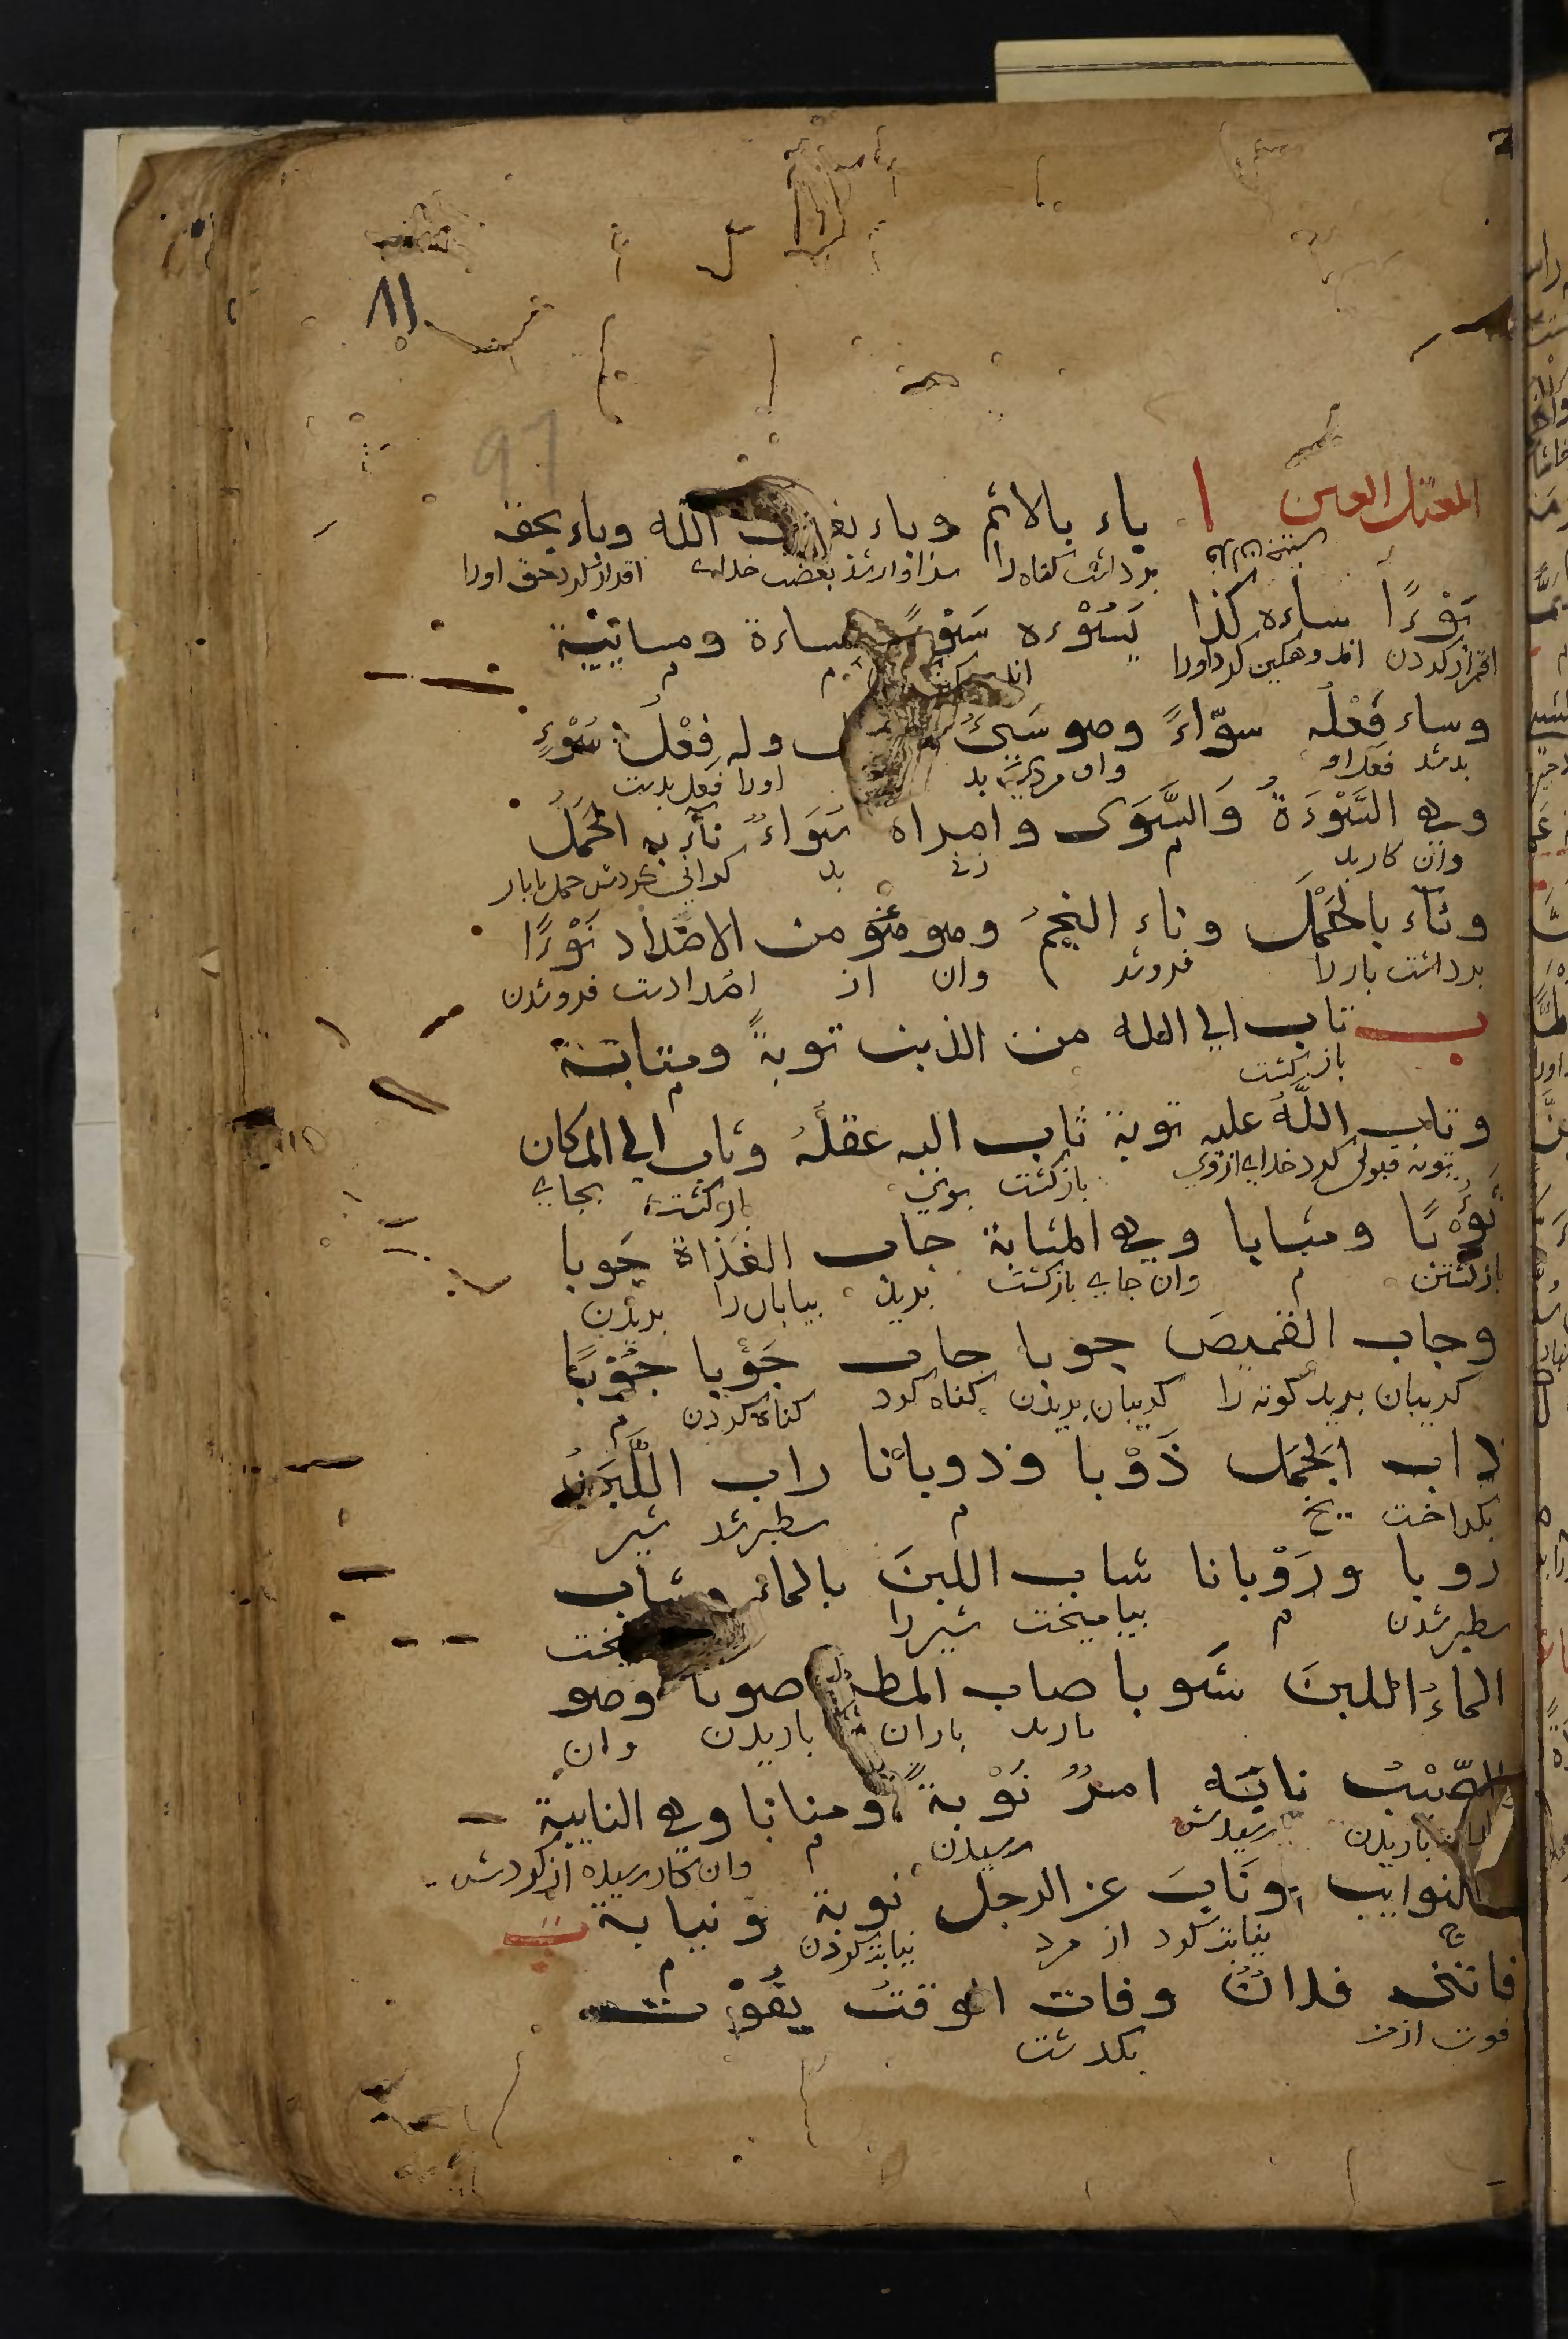 ٨١
97
المعتل العين ا باء بالاثم وباء بغضب الله وباء بحقه
برداشت كناه را سزاوار شد بغضب خداى اقرار كرد بحق اورا
بَوْءًا ساءه كذا يَسُوْءه سَوْءً مساءة ومسائية
اقرار كردن اندوهكين كرد اورا م م
وساء فَعْلُه سوّاءً وهو سَيِّئُ وله فِعْلُ سَوْءٍ
بد شد فعل او وان مرديست بد اورا فعل بدست
وهى السَّوْءَةُ وَالسَّوَى وامراة سَوَاءٌ ناء به الحَمَلُ
وان كار بد م زنى بد كرانى كردش حمل با بار
وناء بالحَمْلَ وناء النجمُ وهو من الاضداد نَوْءًا
برداشت بار را فروشد وان از اضدادست فروشدن
ب تاب الى الله من الذنب توبةً ومتابة
بازكشت م
وتاب اللَّهُ عليه توبة ثاب اليه عقلُهُ وثاب الى المكان
توبه قبول كرد خداى ازوى بازكشت بوى بازكشت بجاى
ثَوْبًا ومثابا وهى المثابة جاب الفَذاة جَوبا
بازكشتن م وان جاى بازكشت بريد بيابان را بريدن
وجاب القميصَ جوبا حاب حَوْبا حُوْبًا
كريبان بريد كوته را كريبان بريدن كناه كرد كناه كردن م
ذاب الجَمَل ذَوْبا وذوبانا راب اللَّبَنُ
بكداخت يخ م سطبر شد شير
روبا ورَوْبانا شاب اللبنَ بالماء وشاب
سطبر شدن م بياميخت شير را
الماءُ اللبنَ شَوبا صاب المطر صوبا وهو
باريد باران باريدن وان
الصّيّبُ نابَه امرٌ نَوْبةً ومنابا وهى النايبة
باريدن رسيدش رسيدن م وان كار رسيده از كردش
النوايب ونَابَ عن الرجل نوبة ونيابة ت
ج نيابت كرد از مرد نيابت كردن م
فاتنى فلانٌ وفات الوقتُ يفُوْت
فوت از من بكذشت